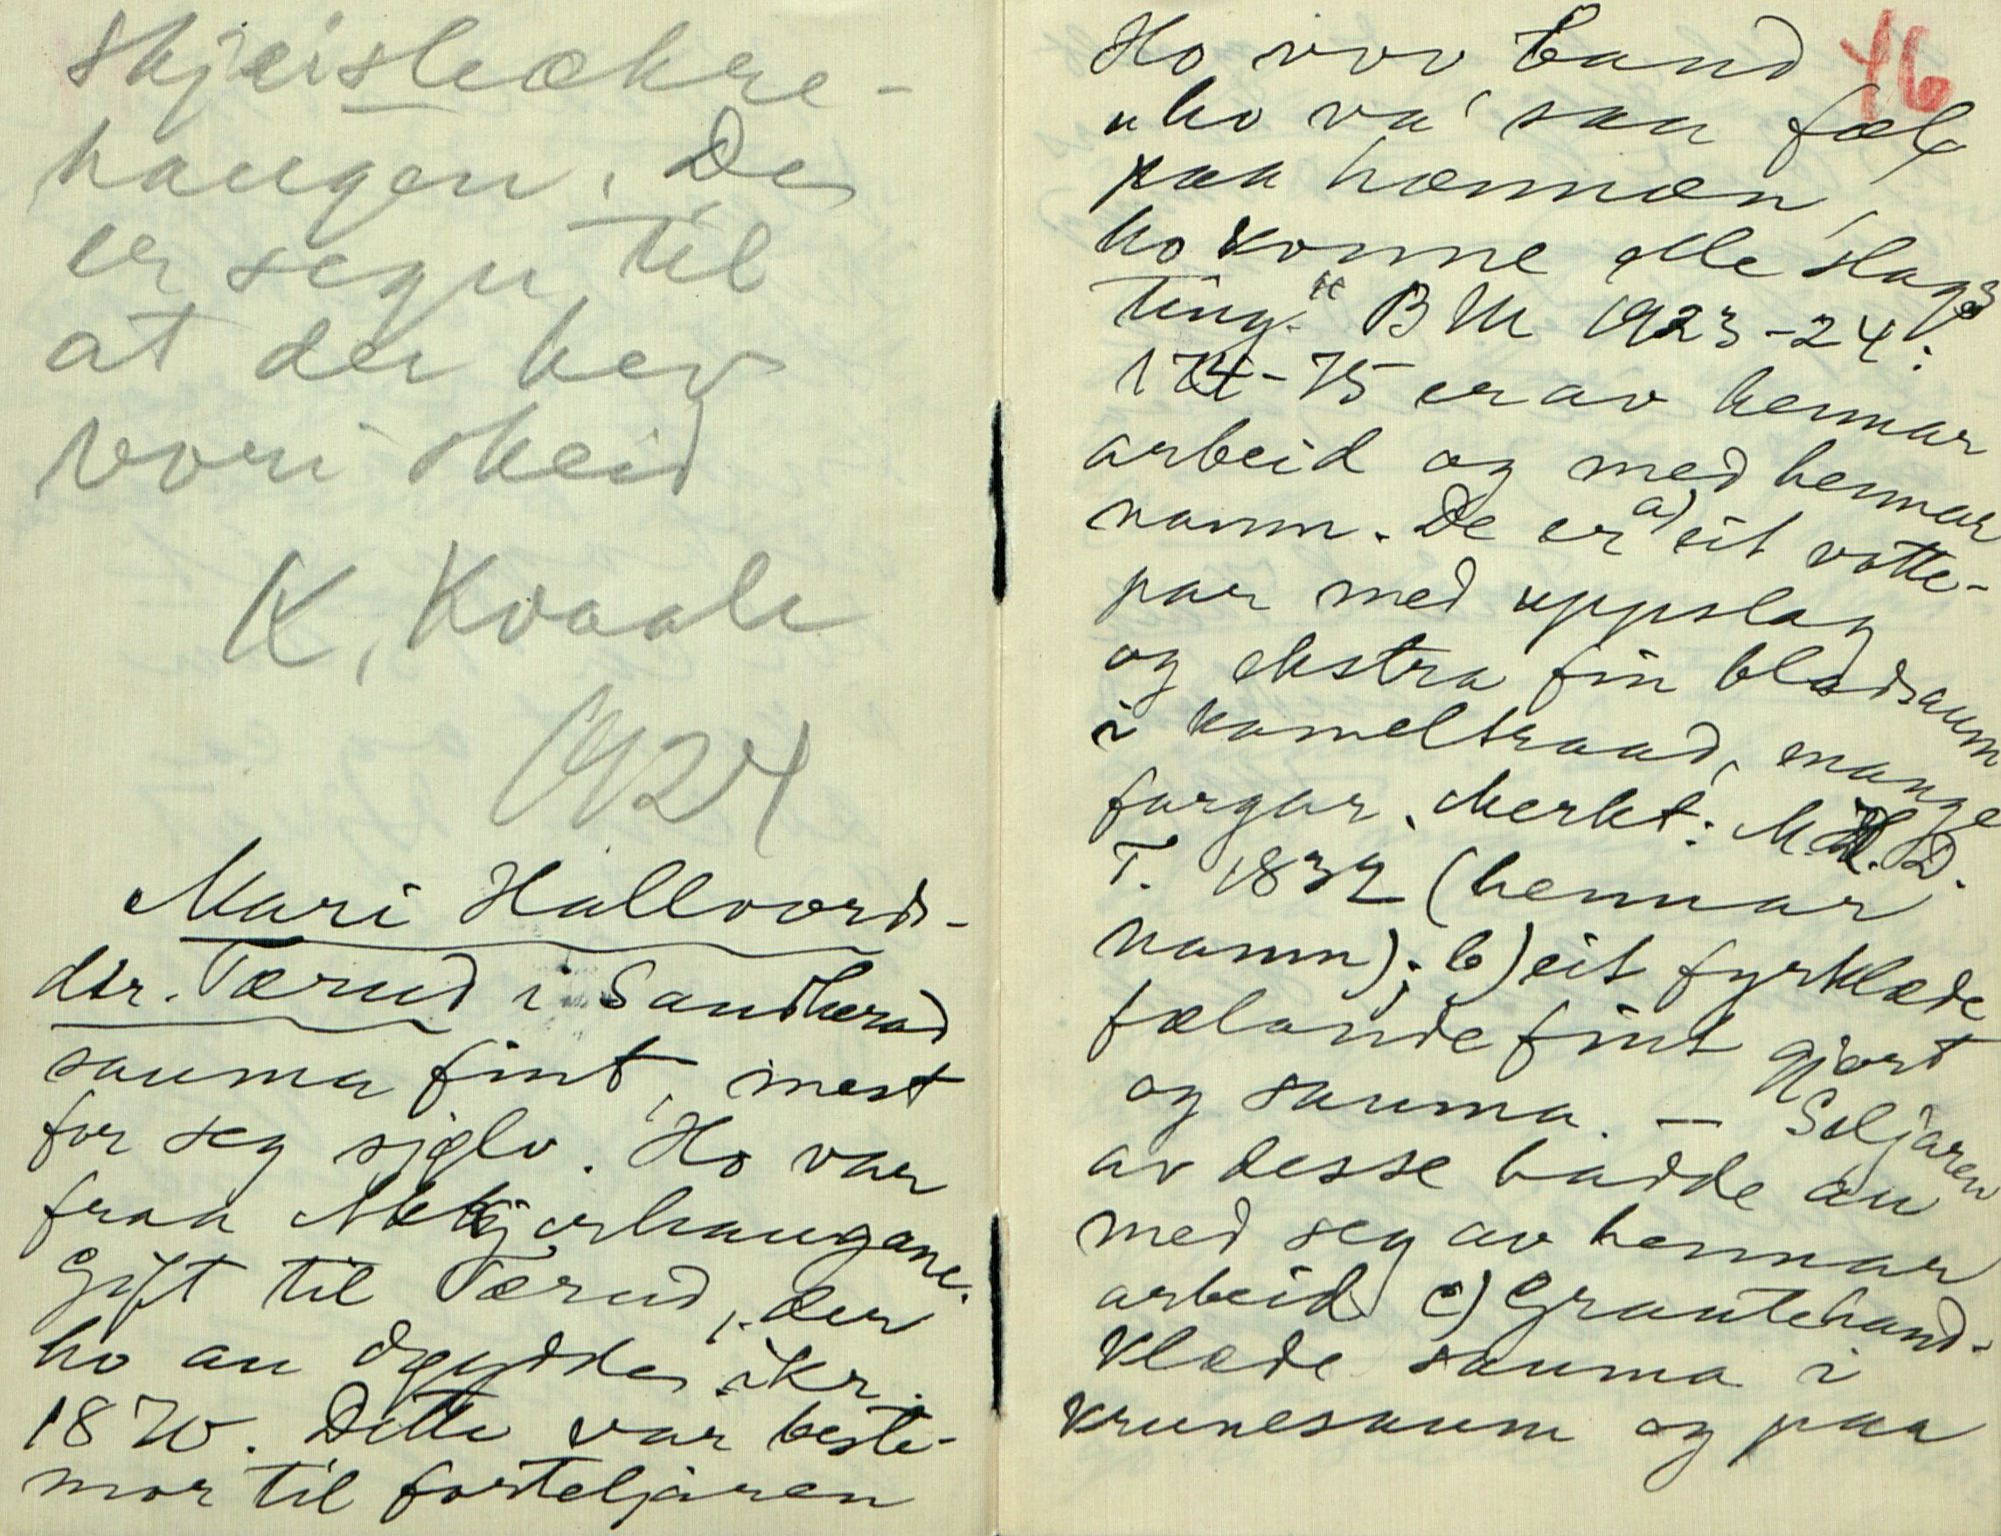 Skjeisleækre-
haugen. De
er segn til
at der hev
vori skeid
K. Kvaale
1924
Mari Hallvords-
dtr. Tærud i Sandherad
sauma fint, mest
for seg sjølv. Ho var
fraa
Gift til Tærud, der
ho au døydde ikr.
1870. Dette var beste-
mor til forteljaren
46
Ho vov band
"ho va' saa fæl
paa hænnæn,
ho konne alle slags
ting." BM 1923-24:
174-75 er av hennar
arbeid og med hennar
namn. De er a) eit votte-
par med uppslag
og ekstra fin bladsaum
i kameltraad, mange
fargar. Merkt: M. H. D.
T. 1832 (hennar
namn); b) eit fyrklæde
fælande fint gjort
og sauma. – Seljaren
av desse hadde au
med seg av hennar
arbeid c) Grautehand-
klæde sauma i
krunesaum og paa